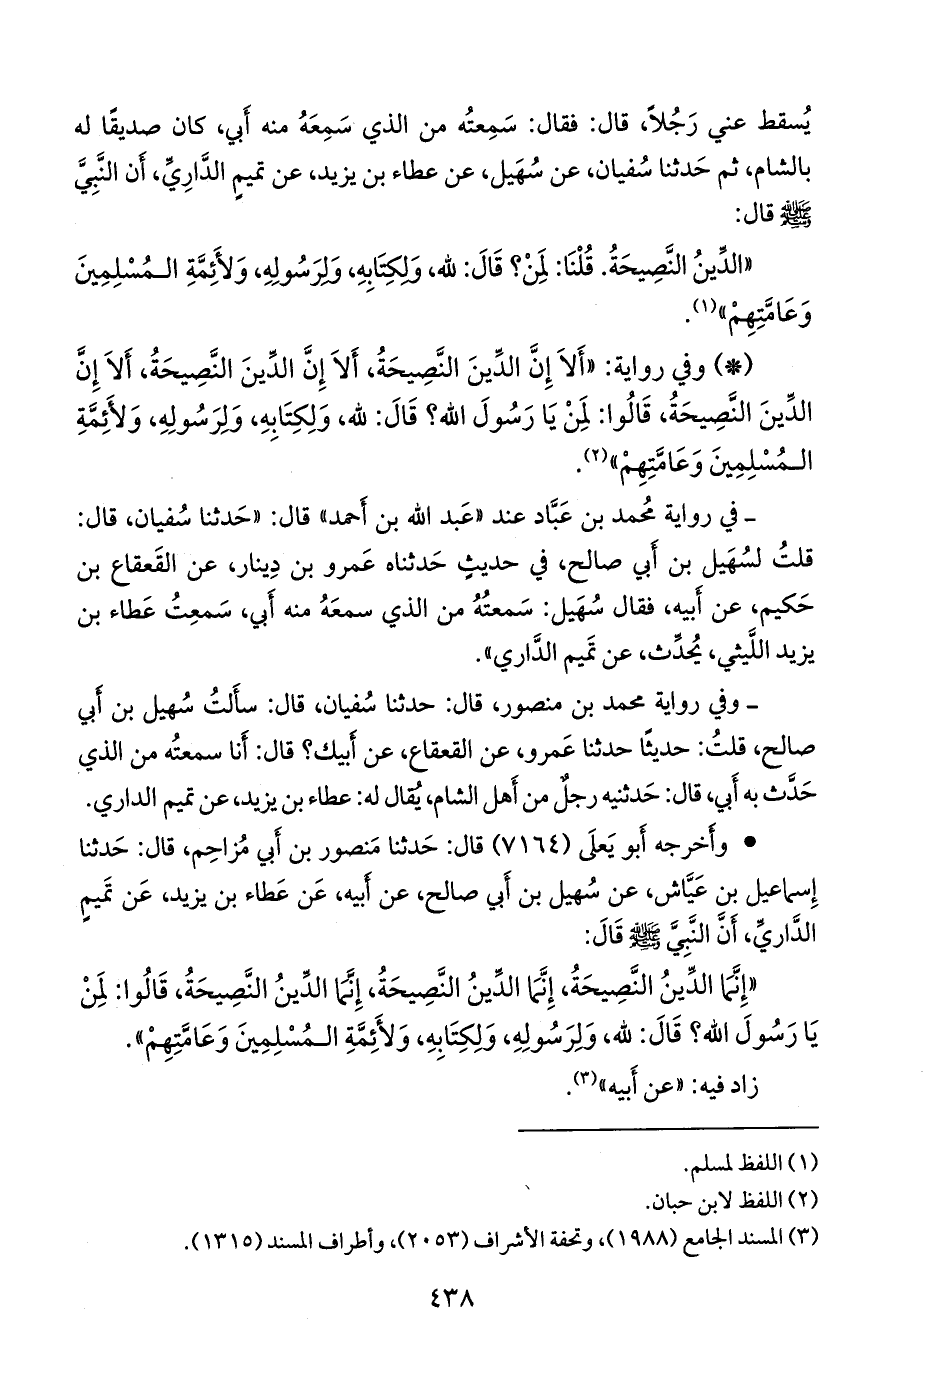 يُسقط عني رَجُلاً، قال: فقال: سَمِعتُه من الذي سَمِعَهُ منه أَبي، كان صديقًا له
بالشام، ثم حَدثنا سُفيان، عن سُهَيل، عن عطاء بن يزيد، عن تميمٍ الدَّارِيِّ، أَن النَّبِيَّ
ﷺ قال:
«الدِّينُ النَّصِيحَةُ. قُلْنَا: لِمَنْ؟ قَالَ: لله، وَلِكِتَابِهِ، وَلِرَسُولِهِ، وَلأَئِمَّةِ الـمُسْلِمِينَ
وَعَامَّتِهِمْ»(١).
(*) وفي رواية: «أَلاَ إِنَّ الدِّينَ النَّصِيحَةُ، أَلاَ إِنَّ الدِّينَ النَّصِيحَةُ، أَلاَ إِنَّ
الدِّينَ النَّصِيحَةُ، قَالُوا: لِمَنْ يَا رَسُولَ الله؟ قَالَ: لله، وَلِكِتَابِهِ، وَلِرَسُولِهِ، وَلأَئِمَّةِ
الـمُسْلِمِينَ وَعَامَّتِهِمْ»(٢).
ـ في رواية مُحمد بن عَبَّاد عند «عَبد الله بن أَحمد» قال: «حَدثنا سُفيان، قال:
قلتُ لسُهَيل بن أَبي صالح، في حديثٍ حَدثناه عَمرو بن دِينار، عن القَعقاع بن
حَكيم، عن أَبيه، فقال سُهَيل: سَمعتُهُ من الذي سمعَهُ منه أَبي، سَمعتُ عَطاء بن
يزيد اللَّيثي، يُحدِّث، عن تَميم الدَّاري».
ـ وفي رواية محمد بن منصور، قال: حدثنا سُفيان، قال: سأَلتُ سُهيل بن أَبي
صالح، قلتُ: حديثًا حدثنا عَمرو، عن القعقاع، عن أَبيك؟ قال: أَنا سمعتُه من الذي
حَدَّث به أَبي، قال: حَدثنيه رجلٌ من أَهل الشام، يُقال له: عطاء بن يزيد، عن تميم الداري.
• وأَخرجه أَبو يَعلَى (٧١٦٤) قال: حَدثنا مَنصور بن أَبي مُزاحِم، قال: حَدثنا
إِسماعيل بن عَيَّاش، عن سُهيل بن أَبي صالح، عن أَبيه، عَن عَطاء بن يزيد، عَن تَميمٍ
الدَّارِيِّ، أَنَّ النَّبِيَّ ﷺ قَالَ:
«إِنَّمَا الدِّينُ النَّصِيحَةُ، إِنَّمَا الدِّينُ النَّصِيحَةُ، إِنَّمَا الدِّينُ النَّصِيحَةُ، قَالُوا: لِمَنْ
يَا رَسُولَ الله؟ قَالَ: لله، وَلِرَسُولِهِ، وَلِكِتَابِهِ، وَلأَئِمَّةِ الـمُسْلِمِينَ وَعَامَّتِهِمْ».
زاد فيه: «عن أَبيه»(٣).
(١) اللفظ لمسلم.
(٢) اللفظ لابن حبان.
(٣) المسند الجامع (١٩٨٨)، وتحفة الأشراف (٢٠٥٣)، وأطراف المسند (١٣١٥).
٤٣٨